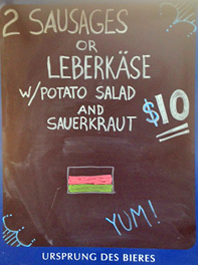 2 SAUSAGES
OR
LEBERKÄSE
W/POTATO SALAD
AND
SAUERKRAUT
$10
YUM!
URSPRUNG DES BIERES